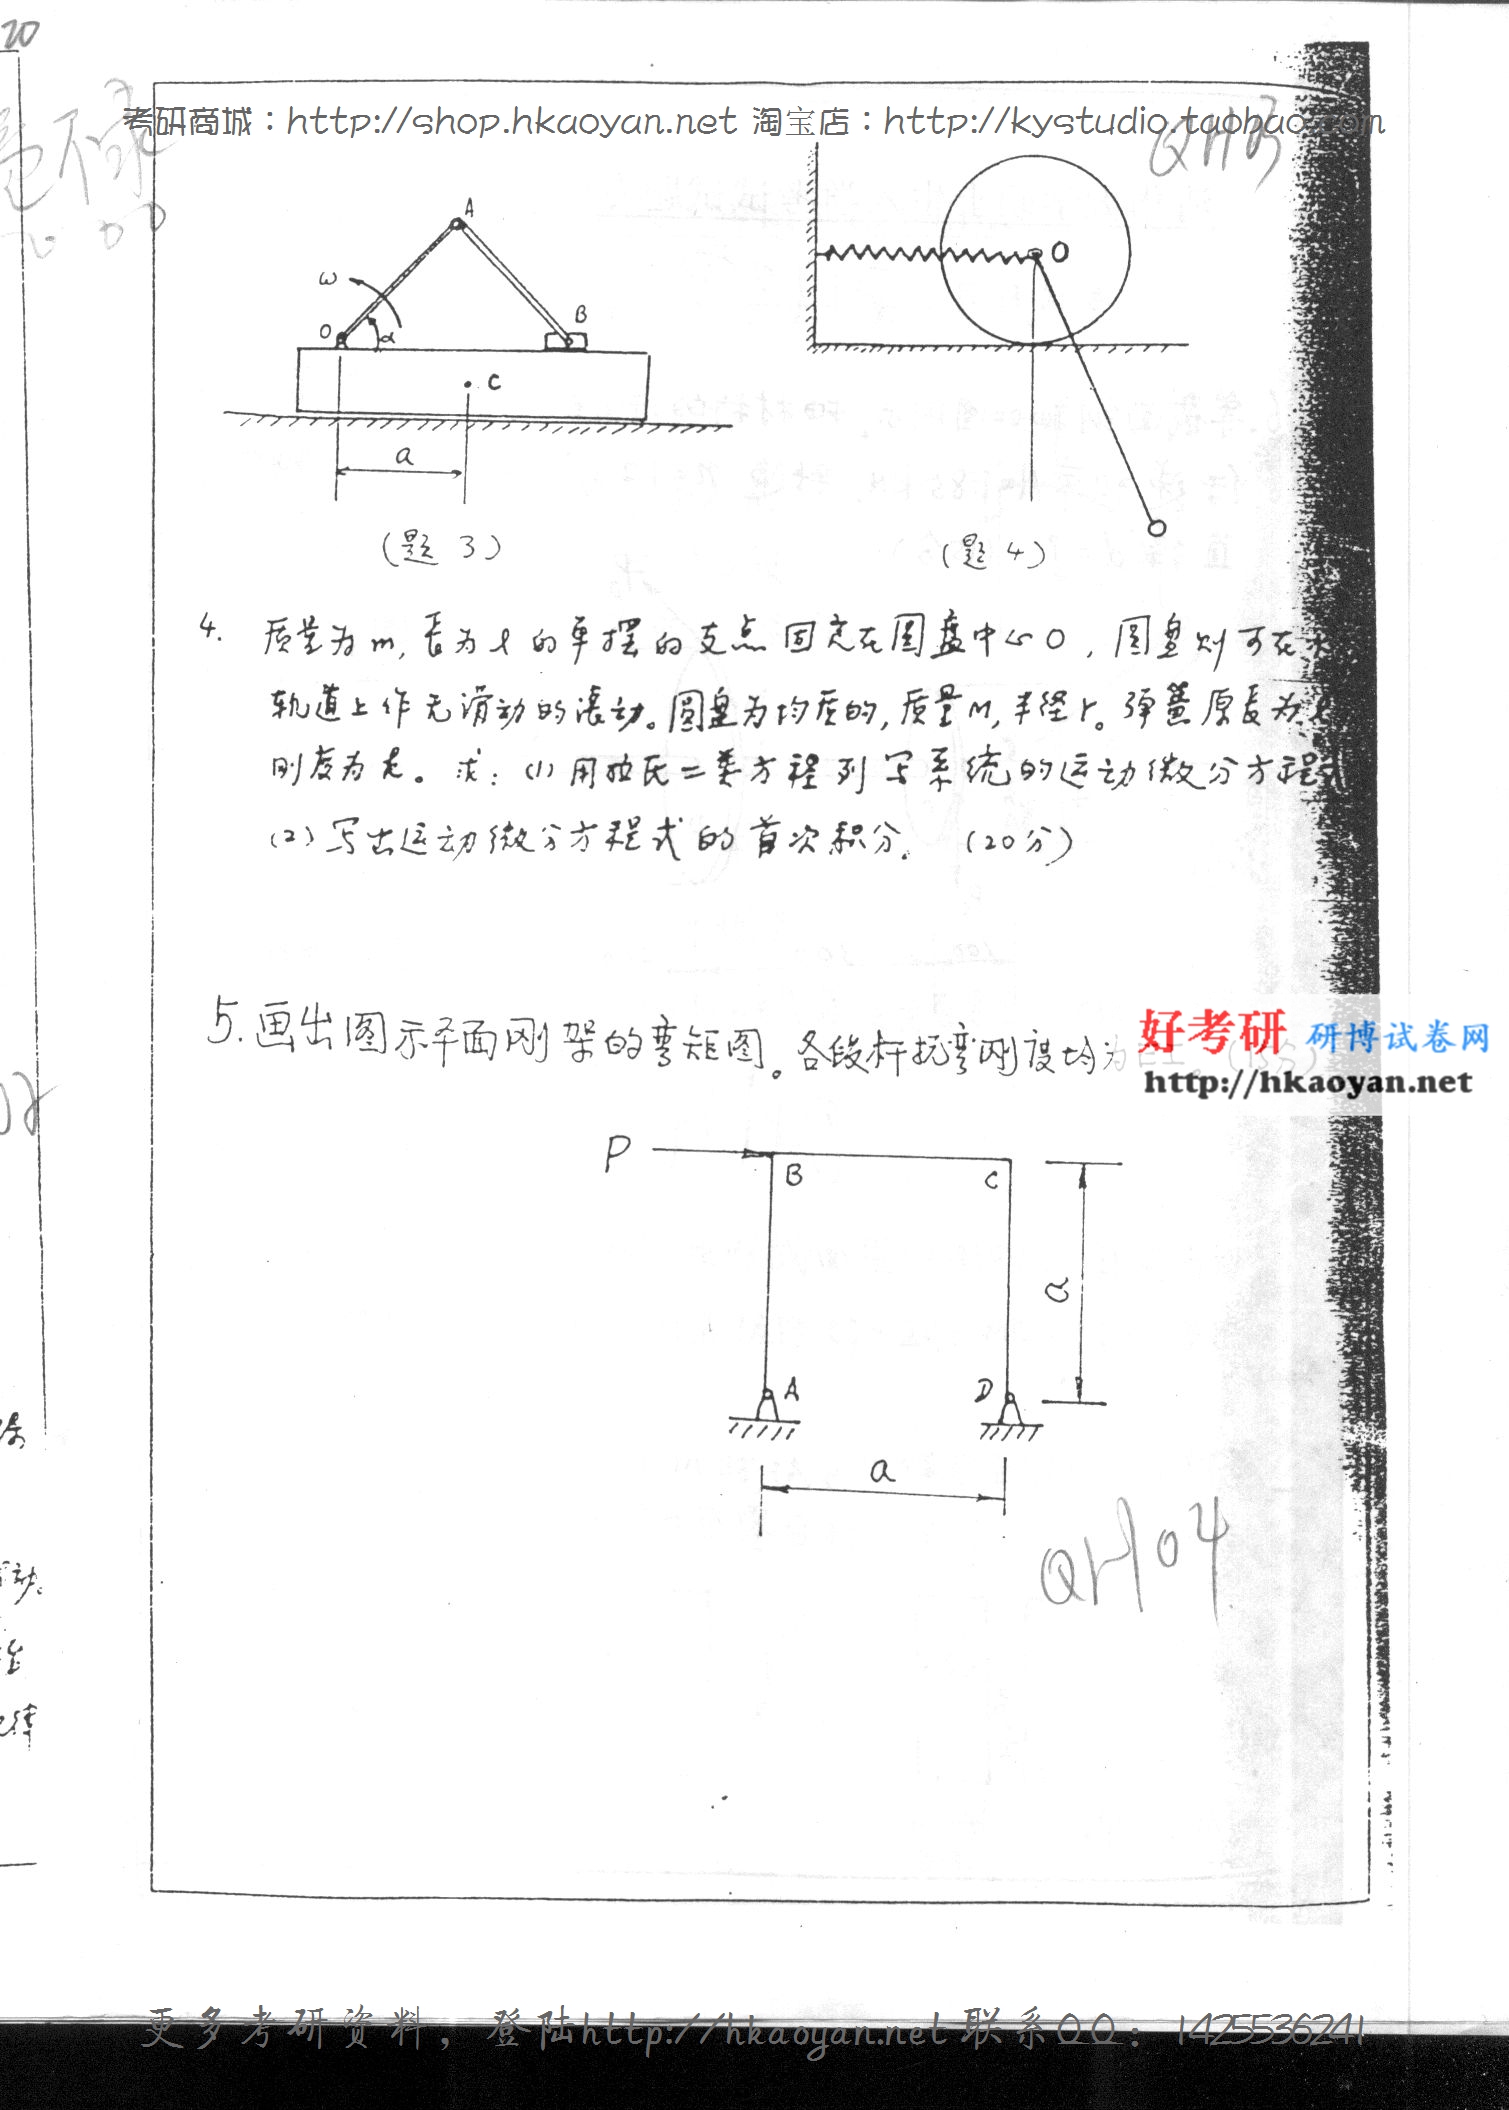 20
考研商城：http://shop.hkaoyan.net 淘宝店：http://kystudio.taobao.com
A
ω
O
α
B
C
a
O
(题 3)
(题 4)
4. 质量为m, 長为l的单摆的支点固定在圆盘中心O, 圆盘则可在
轨道上作无滑动的滚动。圆盘为均质的, 质量M, 半径r。弹簧原長为
刚度为k。求: (1) 用拉氏二类方程列写系统的运动微分方程式
(2) 写出运动微分方程式的首次积分. (20分)
5. 画出图示平面刚架的弯矩图。各段杆抗弯刚度均为EI。(15分)
好考研 研博试卷网
http://hkaoyan.net
P
B
C
a
A
D
a
QH04
更多考研资料，登陆http://hkaoyan.net联系QQ：1425536241